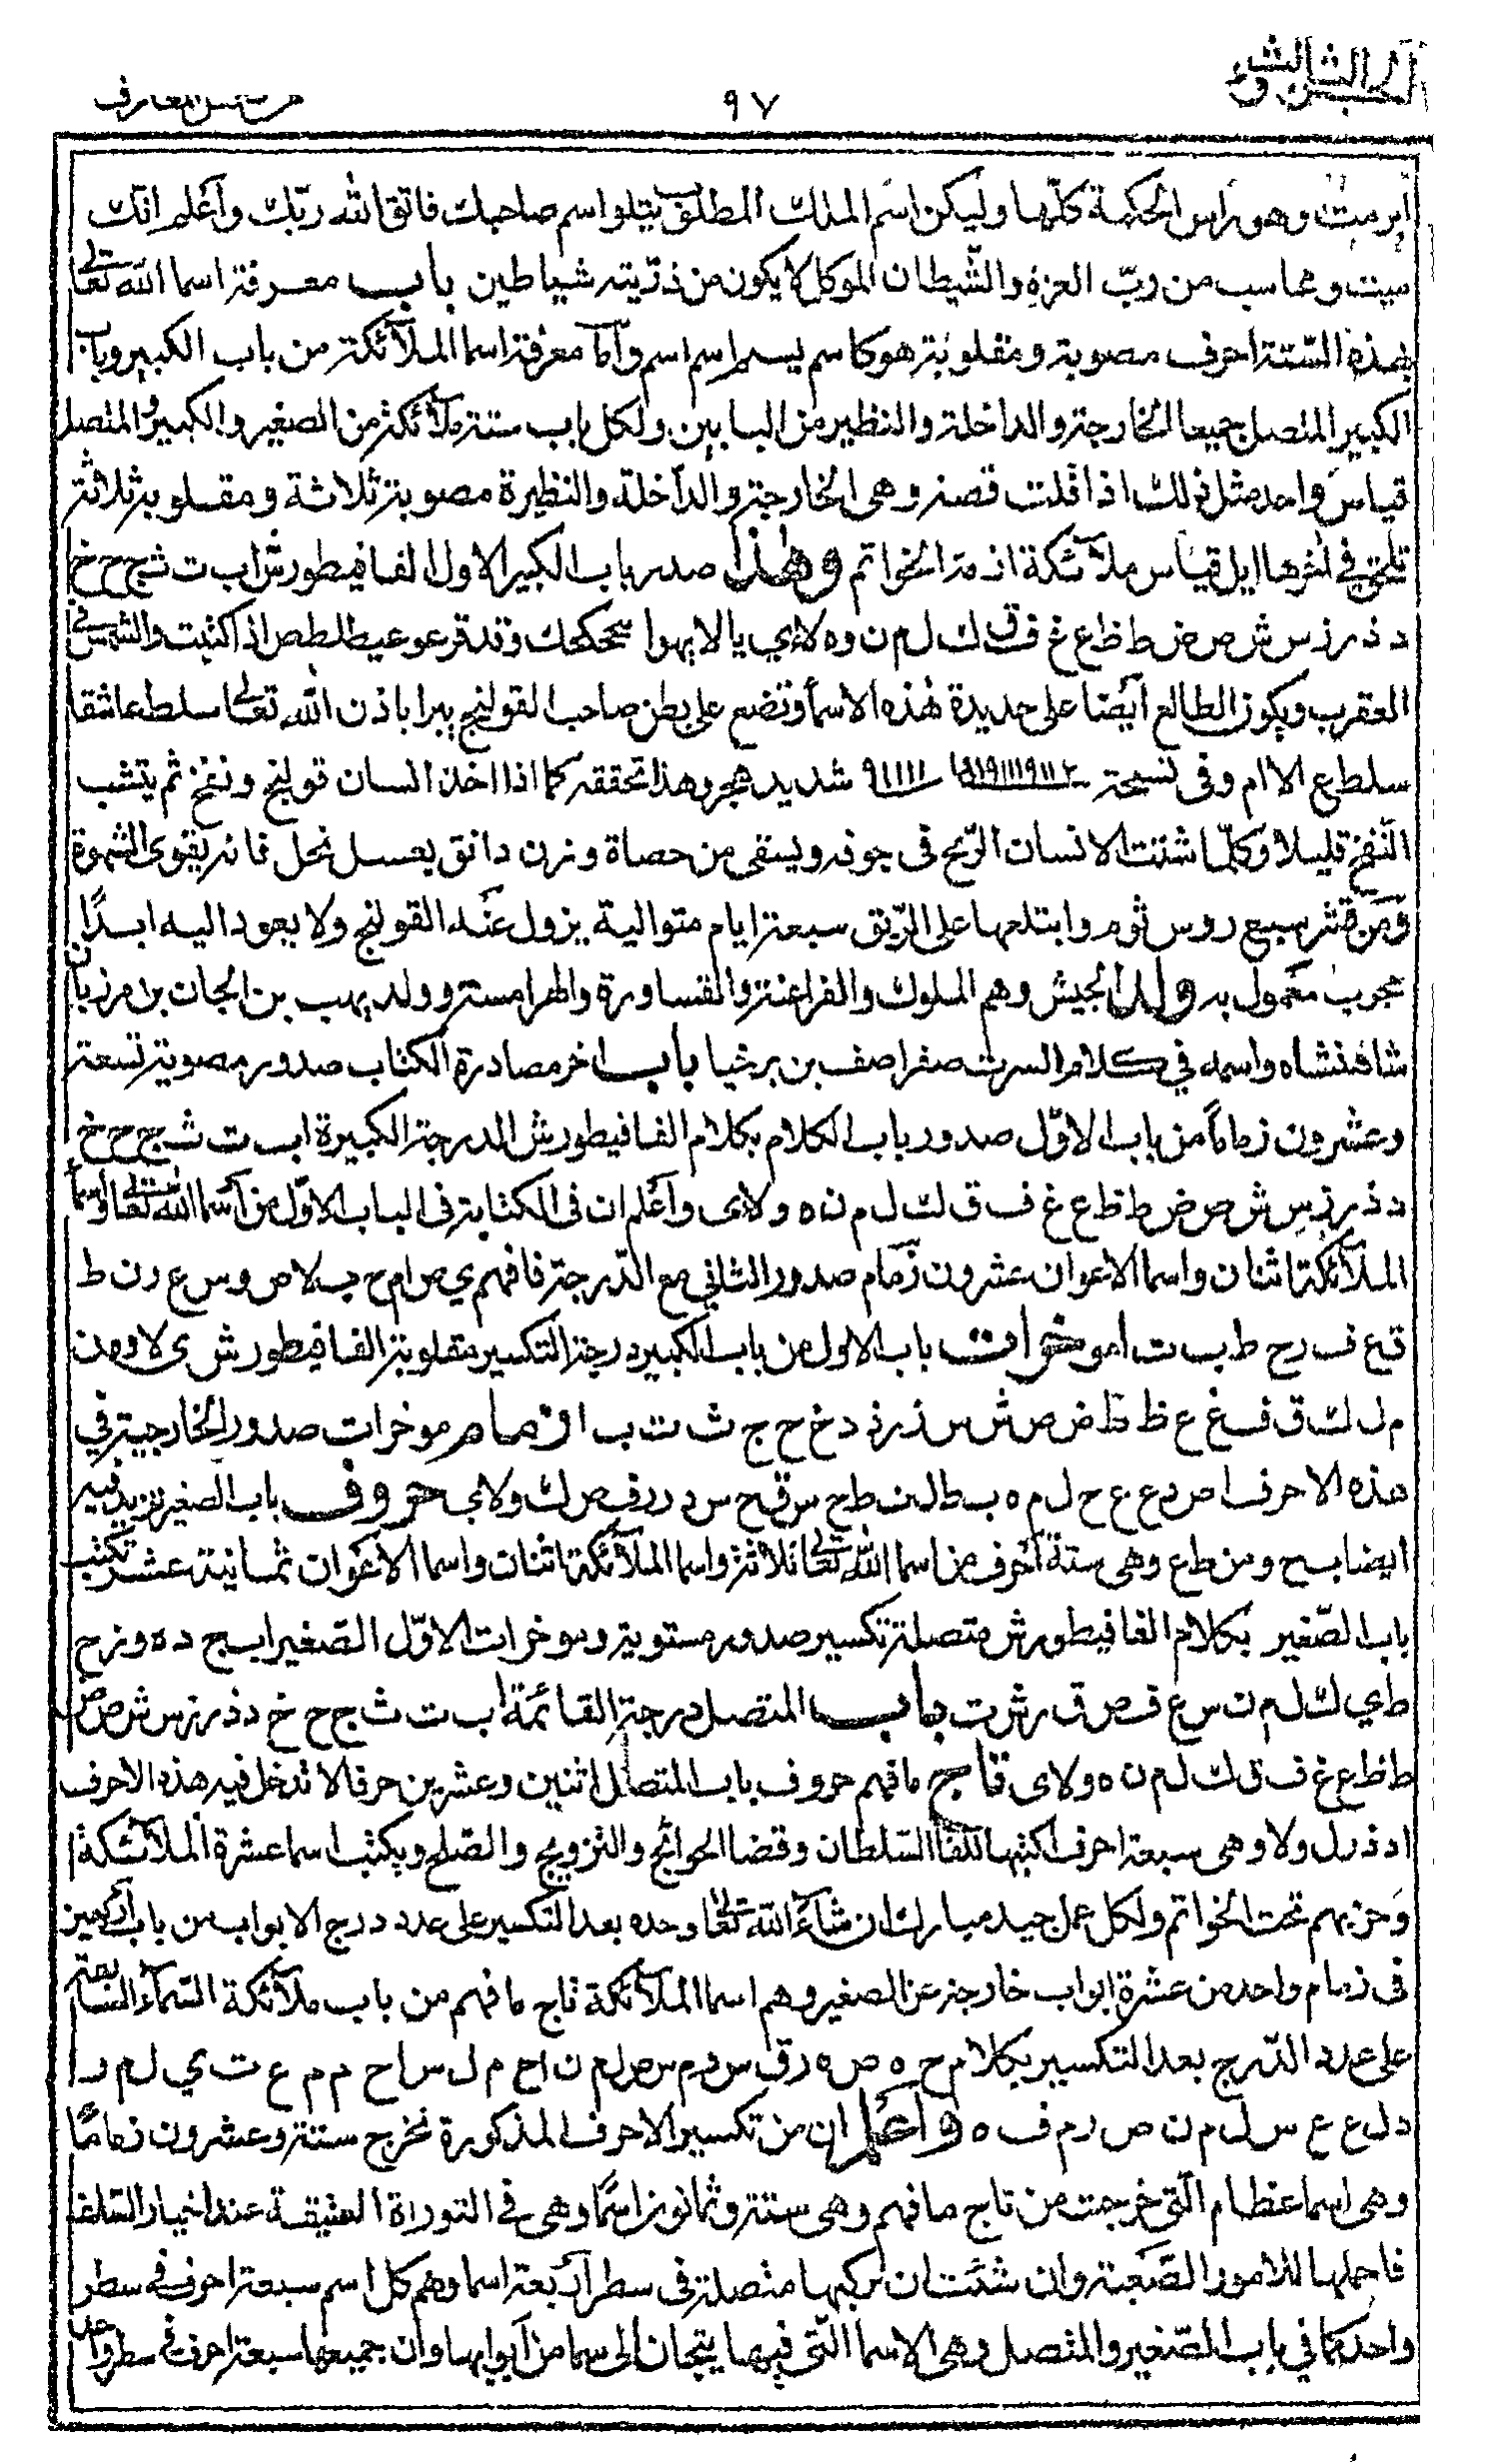 الجزء الثالث
٩٧
شمس المعارف
وهو راس الحكمة كلها وليكن اسم الملك المطلق يتلو اسم صاحبك فاتق الله ربك واعلم انك
ميت ومحاسب من رب العزة والشيطان الموكل لا يكون من ذريته شياطين باب معرفة اسما الله تعالى
بهذه الستة احرف مصوبة ومقلوبة هو كاسم يسم اسم اسم واما معرفة اسما الملآئكة من باب الكبير وباب
الكبير المتصل جميعا الخارجة والداخلة والنظير من البابين ولكل باب ستة ملآئكة من الصغير والكبير والمتصل
قياس واحد مثل ذلك اذا قلت قصد وهى الخارجة والداخلة والنظيرة مصوبة ثلاثة ومقلوبة ثلاثة
تلحق في اخرها ايل قياس ملآئكة الخواتم وهذا صدر باب الكبير الاول الفافيطورش ا ب ت ث ج ح خ
د ذ ر ز س ش ص ض ط ظ ع غ ف ق ك ل م ن و ه لا ي يا لا يهوا اذا كتبت والشمس فى
العقرب ويكون الطالع ايضا على حديدة هذه الاسما وتضع على بطن صاحب القولنج يبرا باذن الله تعالى سلطعاشقا
سلطع الاام وفى نسخة شديد هجر وهذا تحققه كما اذا اخذ انسان قولنج ونفخ ثم يتشب
النفخ قليلا وكلما شئت الانسان الريح فى جوفه ويسقى من حصاة وزن دانق بعسل نحل فانه يقوى الشهوة
ومن قشر سبع روس ثوم وابتلعها على الريق سبعة ايام متوالية يزول عنه القولنج ولا يعود اليه ابدًا
مجرب معمول به ولد الجيش وهم الملوك والفراعنة والقساورة والهرامسة وولد يهب بن الجان بن مرزبان
شاهنشاه واسمه في كلام السرت صفر اصف بن برخيا باب اخر مصادرة الكتاب صدور مصوبة تسعة
وعشرون زماماً من باب الاول صدور باب الكلام بكلام الفافيطورش المدرجة الكبيرة ا ب ت ث ج ح خ
د ذ ر ز س ش ص ض ط ظ ع غ ف ق ك ل م ن ه و لا ى واعلم ان فى الكتابة فى الباب الاول من اسما الله تعالى واسما
الملآئكة اثنان واسما الاعوان عشرون زمام صدور الثاني مع الدرجة فافهم ي ص ا م ح ب لا ص و س ع ر ن ط
ق ع ف ر ح ط ب ت ا م و موخرات باب الاول من باب الكبير درجة التكسير مقلوبة الفافيطورش ى لا و ه ن
م ل ك ق ف غ ع ظ ط ض ص ش س ز ر ذ د خ ح ج ث ت ب ا زمام موخرات صدور الخارجية في
هذه الاحرف ا ص د ع ع ح ل م ه ب ط ا ل ن ط ح س ق ح س د ر ر ف ص ك و لا ى حروف باب الصغير تزيد فيه
ايضا ب ح و م ن ط ع وهى ستة احرف من اسما الله تعالى ثلاثة واسما الملآئكة اثنان واسما الاعوان ثمانية عشر تكتب
باب الصغير بكلام الفافيطورش متصلة تكسير صدور مستوية وموخرات الاول الصغير ا ب ج د ه و ز ح
ط ي ك ل م ن س ع ف ص ق ر ش ت باب المتصل درجة القائمة ا ب ت ث ج ح خ د ذ ر ز س ش ص ض
ط ظ ع غ ف ق ك ل م ن ه و لا ى تاج ما فهم حروف باب المتصل اثنين وعشرين حرفا لا تدخل فيه هذه الاحرف
ا د ذ ر ل و لا و هى سبعة احرف اكتبها للقا السلطان وقضا الحوائج والتزويج والصلح ويكتب اسما عشرة الملآئكة
وحزبهم تحت الخواتم ولكل عمل جيد مبارك ان شاء الله تعالى وحده بعد التكسير على عدد درج الابواب من باب اربعين
فى زمام واحد من عشرة ابواب خارجة عن الصغير وهم اسما الملآئكة تاج ما فهم من باب ملآئكة السمآء السابعة
على عدد الدرج بعد التكسير بكلام ح ه ص ه ر ق س د م س ص ل م ن ا ح م ل س ا ح م م ع ت ي ل م د ا
د ل ع ع س ل م ن ص ر م ف ه واعلم ان من تكسير الاحرف المذكورة تخرج ستة وعشرون زمامًا
وهى اسما عظام التي خرجت من تاج ما فهم وهى ستة وثمانون اسمًا وهى في التوراة العتيقة عند اخيار السلف
فاحملها للامور الصعبة وان شئت ان تركبها متصلة فى سطر اربعة اسما وهم كل اسم سبعة احرف فى سطر
واحد كما في باب الصغير والمتصل وهى الاسما التى فيها يتجان الى سما من ابوابها وان جميعها سبعة احرف فى سطر واحد